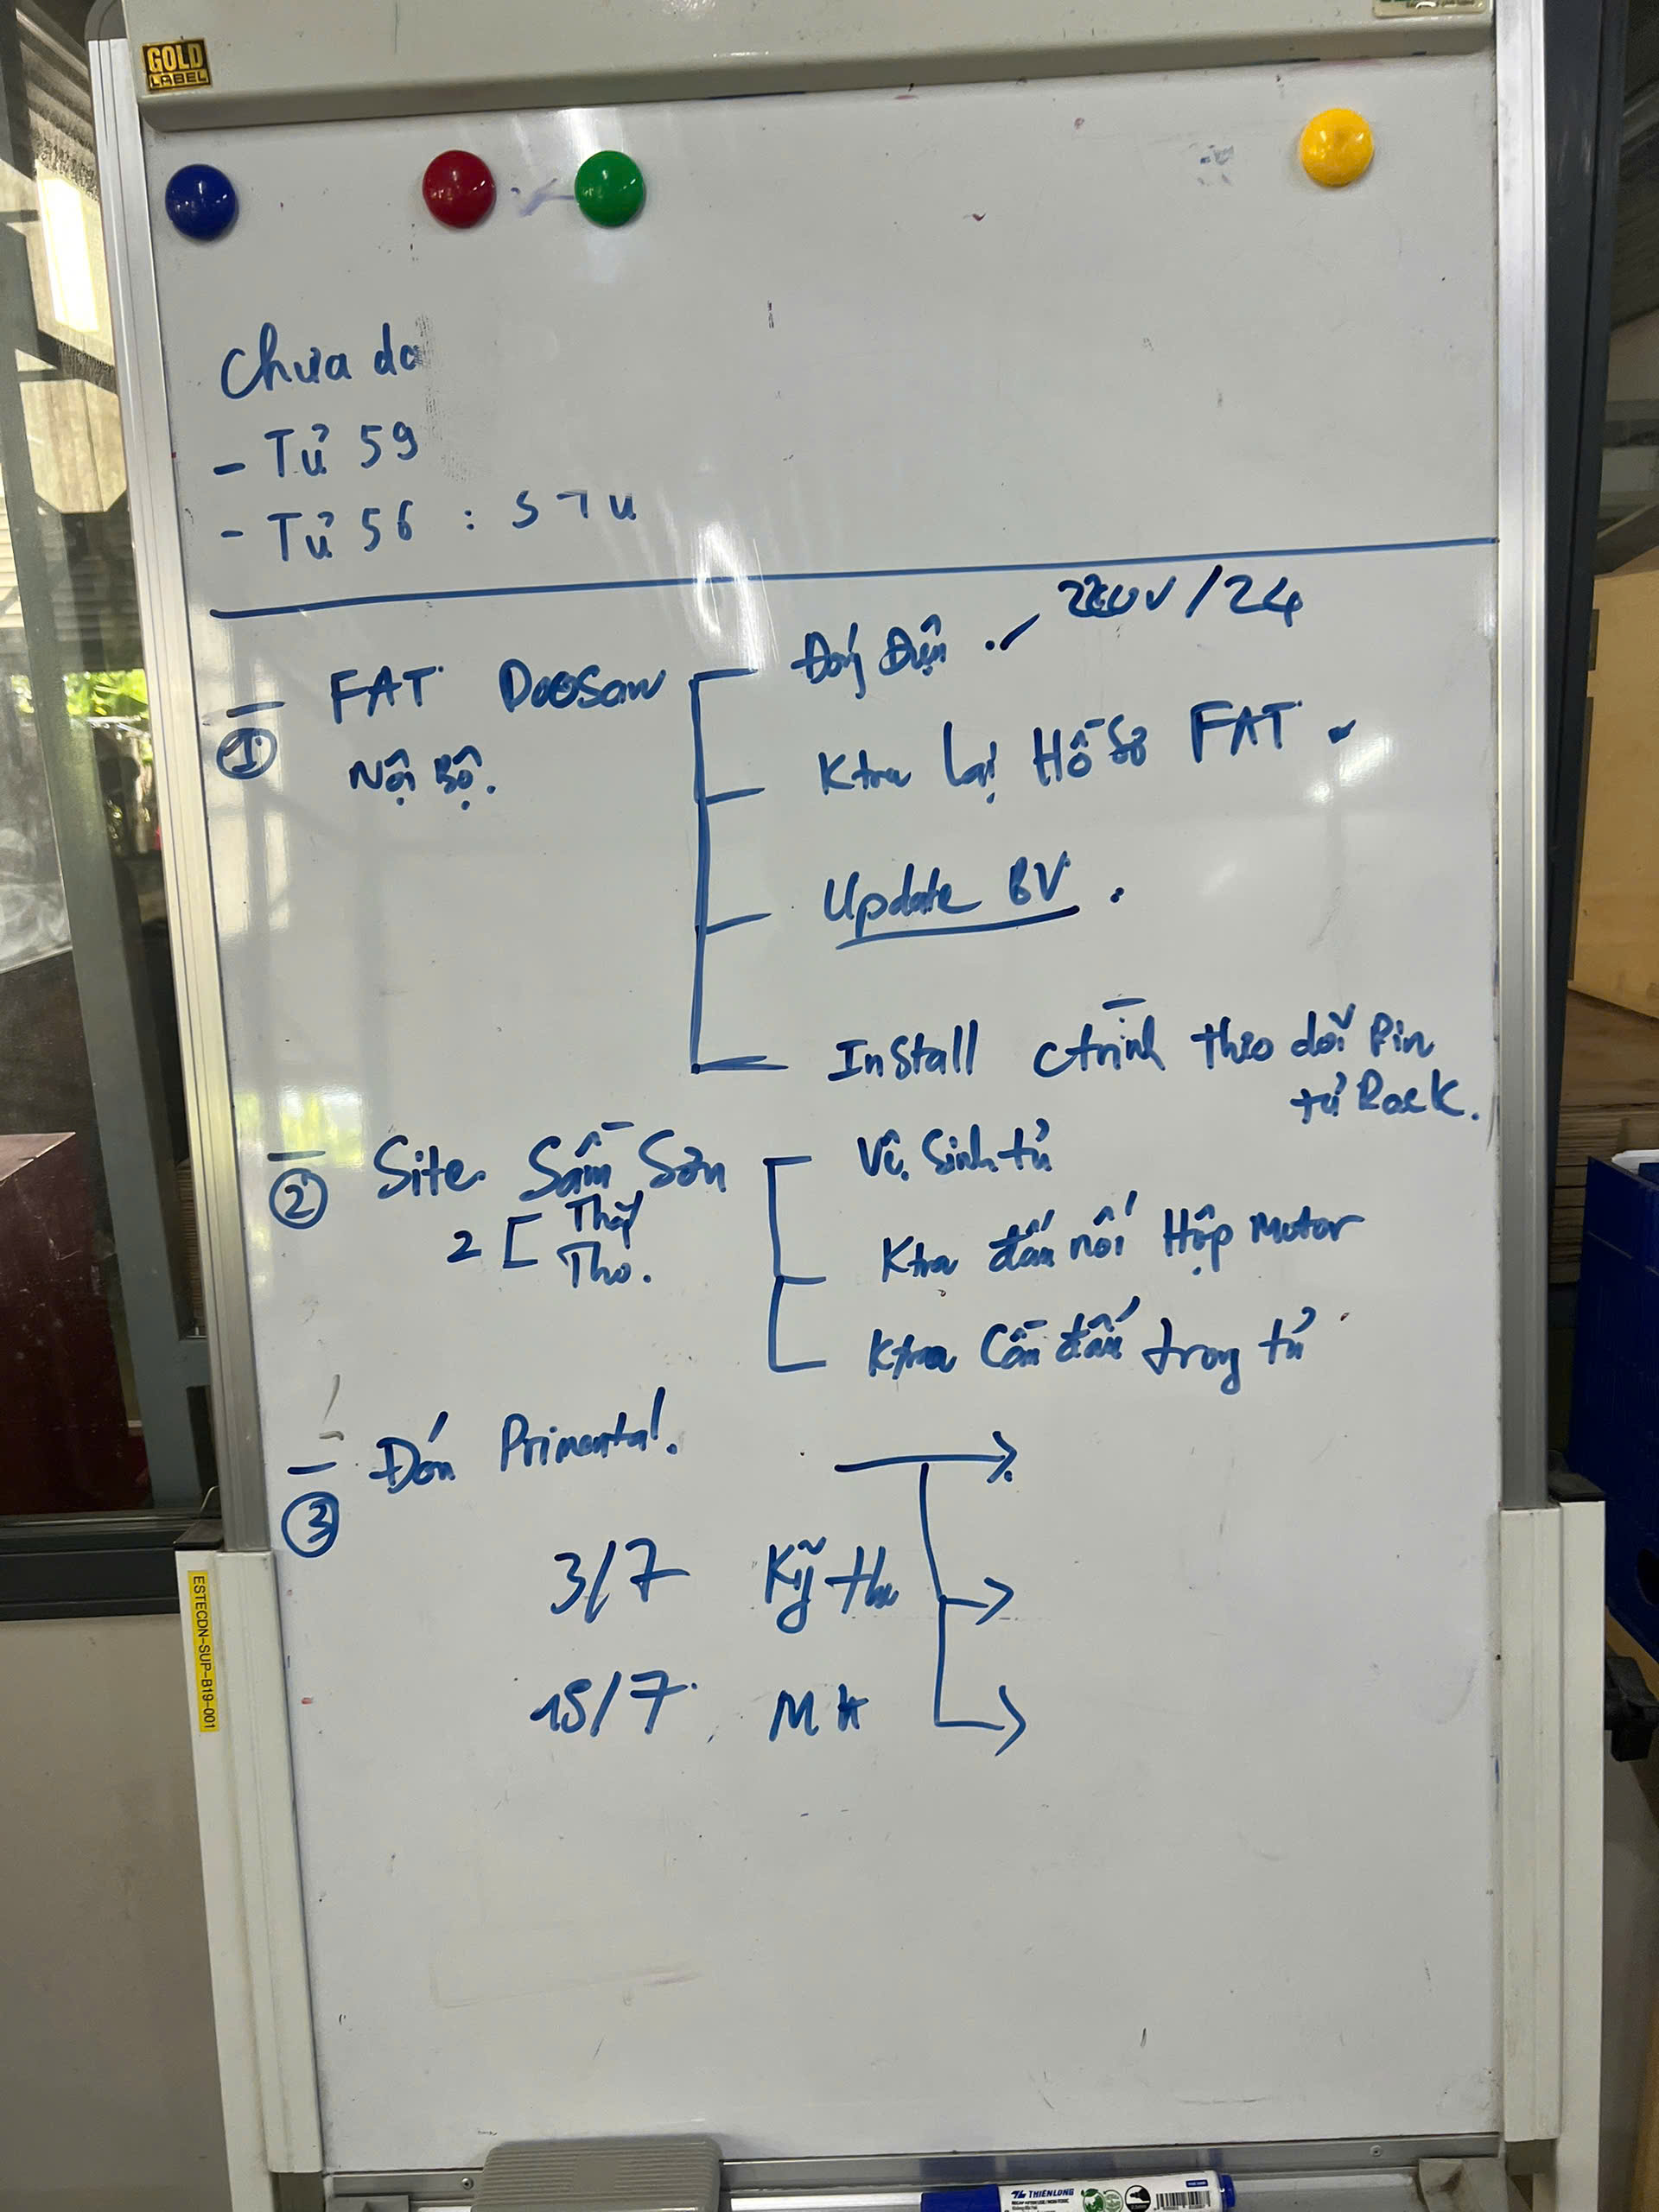 GOLD
LABEL
Chưa đo
- Tủ 59
- Tủ 56 : STU
① FAT Doosan
Nội Bộ.
Đóng Điện . 220V/24
Ktra lại Hồ Sơ FAT
Update BV.
Install ctrình theo dõi Pin
tủ Rack.
② Site Sầm Sơn
2 [ Thầy
Thọ.
Vệ Sinh tủ
Ktra đấu nối Hộp Motor
Ktra Cân đấu trong tủ
③ Đón Primental.
3/7 Kỹ thu
15/7 MH
ESTECDN-SUP-B19-001
THIÊN LONG